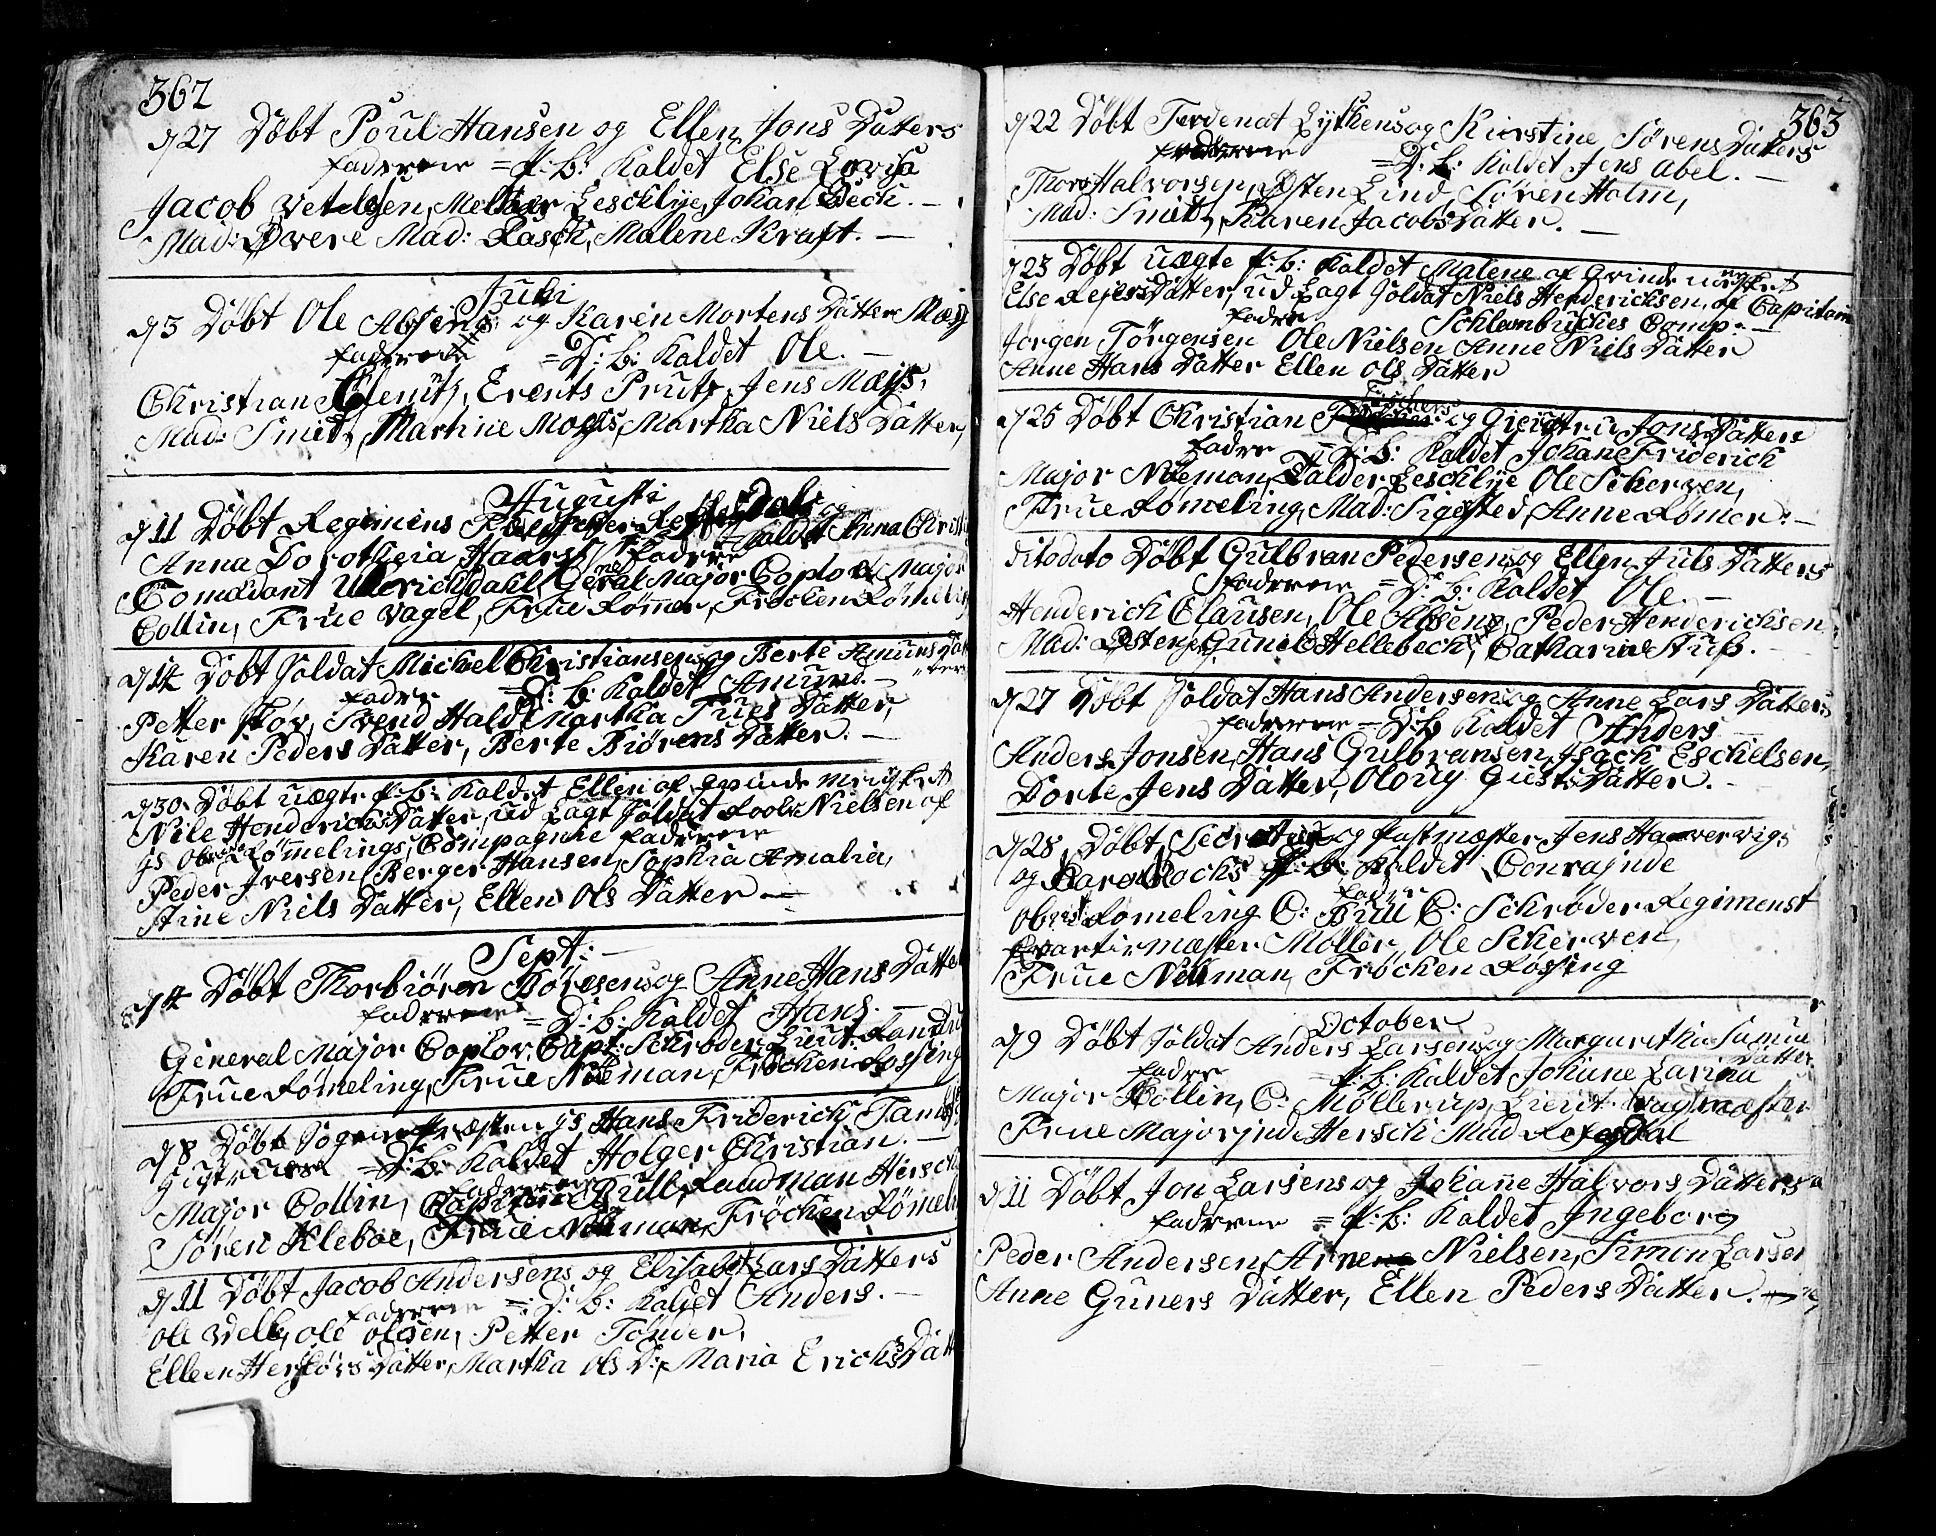 362
d 27 Døbt Poul Hansen og Ellen Jons Datters
fadrene = P: b: Kaldet Else Lovisa
Jacob Vetelsen, Melker Leschlye, Johan Beck. —
Mad: Øvere Mad: Rasch, Malene Kraft. —
Juli
d 3 Døbt Ole Absens og Karen Mortens Datter
fadrene = D: b: Kaldet Ole. —
Christian Clenitz, Erents Prutz, Jens Mæis,
Mad: Smidt, Martine Moess, Martha Niels Datter,
Augusti
d 11 Døbt Regimens og
Anna Dorotheia fadrene Kaldet Anna Christi
Comedant Ulerichdahl, General Major Coplov, Major
Collin, Frue Vagel, Frue Rømer, Frøcken Rømeling
d 14 Døbt Soldat Michel Christiansens og Berte Amuns Dat
ters
fadre = D: b: Kaldet Amun. —
Petter Støv, Svend Hald Martha Tues Datter,
Karen Peders Datter, Berte Biørens Datter. —
d 30 Døbt uægte P: b: Kaldet Ellen af Qvinde Mennisket
Nile Henderichs Datter, ud Lagt Soldat Nielsen af
Rømelings Compagnie fadrene
Peder Iversen, Berger Hansen, Sophia Amalia,
Stine Niels Datter, Ellen Ols Datter —
Sept: —
d 4 Døbt Thorbiøren Børesens og Anne Hans Datter
fadrene = D: b: Kaldet Hans. —
General Major Coplov, Capt: Schrøder, Lieut:
Frue Rømeling, Frue Nieman, Frøcken Rossing
d 8 Døbt Sogne Præsten Hans Friderich
= D: b: Kaldet Holger Christian. —
fadrene
Major Collin, Capitein Bull, Landman Hersch
Søren Kleboe, Frue Nieman, Frøcken Rømeling
d 11 Døbt Jacob Andersens og Elisabet Lars Datters
fadrene = D: b: Kaldet Anders. —
Ole Velb, Ole Olsen, Petter Tønder,
Elleen Herløvs Datter, Martha Ols D:, Maria Erichs Datt
363
d 22 Døbt Ferdenat Lytkens og Kirstine Sørens Datters
fadrene = D: b: Kaldet Jens Abel. —
Thore Halvorsen, Østen Lind, Søren Holm,
Mad: Smidt, Karen Jacobs Datter. —
d 23 Døbt uægte P: b: Kaldet Malene af Qvinde mennisket
Else Rejers Datter, ud Lagt Soldat Niels Henderichsen, af Capitain
fadre Schlambuches Comp: —
Jørgen Tørgensen Ole Nielsen Anne Niels Datter
Anne Hans Datter Ellen Ols Datter
Fischers
d 25 Døbt Christian og Giertru Jons Datters
fadre = D: b: Kaldet Johan Friderich
Major Nieman, Balder Leschlye Ole Scherven,
Frue Rømeling, Mad: Sigested, Anne Rømer. —
Dito dato Døbt Gulbran Pedersens og Ellen Juls Datters
fadrene = D: b: Kaldet Ole. —
Henderich Clausen, Ole Absens, Peder Henderichsen
Mad: Østen, Gunild Hellebech, Catharine Stub. —
d 27 Døbt Soldat Hans Andersens og Anne Lars Datters
fadrene = D: b: Kaldet Anders
Anders Jonsen, Hans Gulbransen, Isach Eschelsen,
Dorte Jens Datter, Oloug Gusts Datter. —
d 28 Døbt Secretair og Postmester Jens Haavervigs
og Karen Bochs P: b: Kaldet Conragnde
fadre
Obrist Rømeling C: Bull C: Schrøder Regimenst
Qvartirmæster Møller, Ole Scherven,
Frue Nieman, Frøcken Rossing
October
d 9 Døbt Soldat Anders Larsens og Margaretha Samue
Datter
fadre = P: b: Kaldet Johane Larina
Major Collin, C: Møllerup, Lieut: Vagtmæster
Frue Majorinde Hersch Mad Refsdal
d 11 Døbt Jon Larsens og Johane Halvors Datters
fadrene = P: b: Kaldet Ingeborg
Peder Andersen, Arne Nielsen, Simon Larsen
Anne Guners Datter, Ellen Peders Datter. —